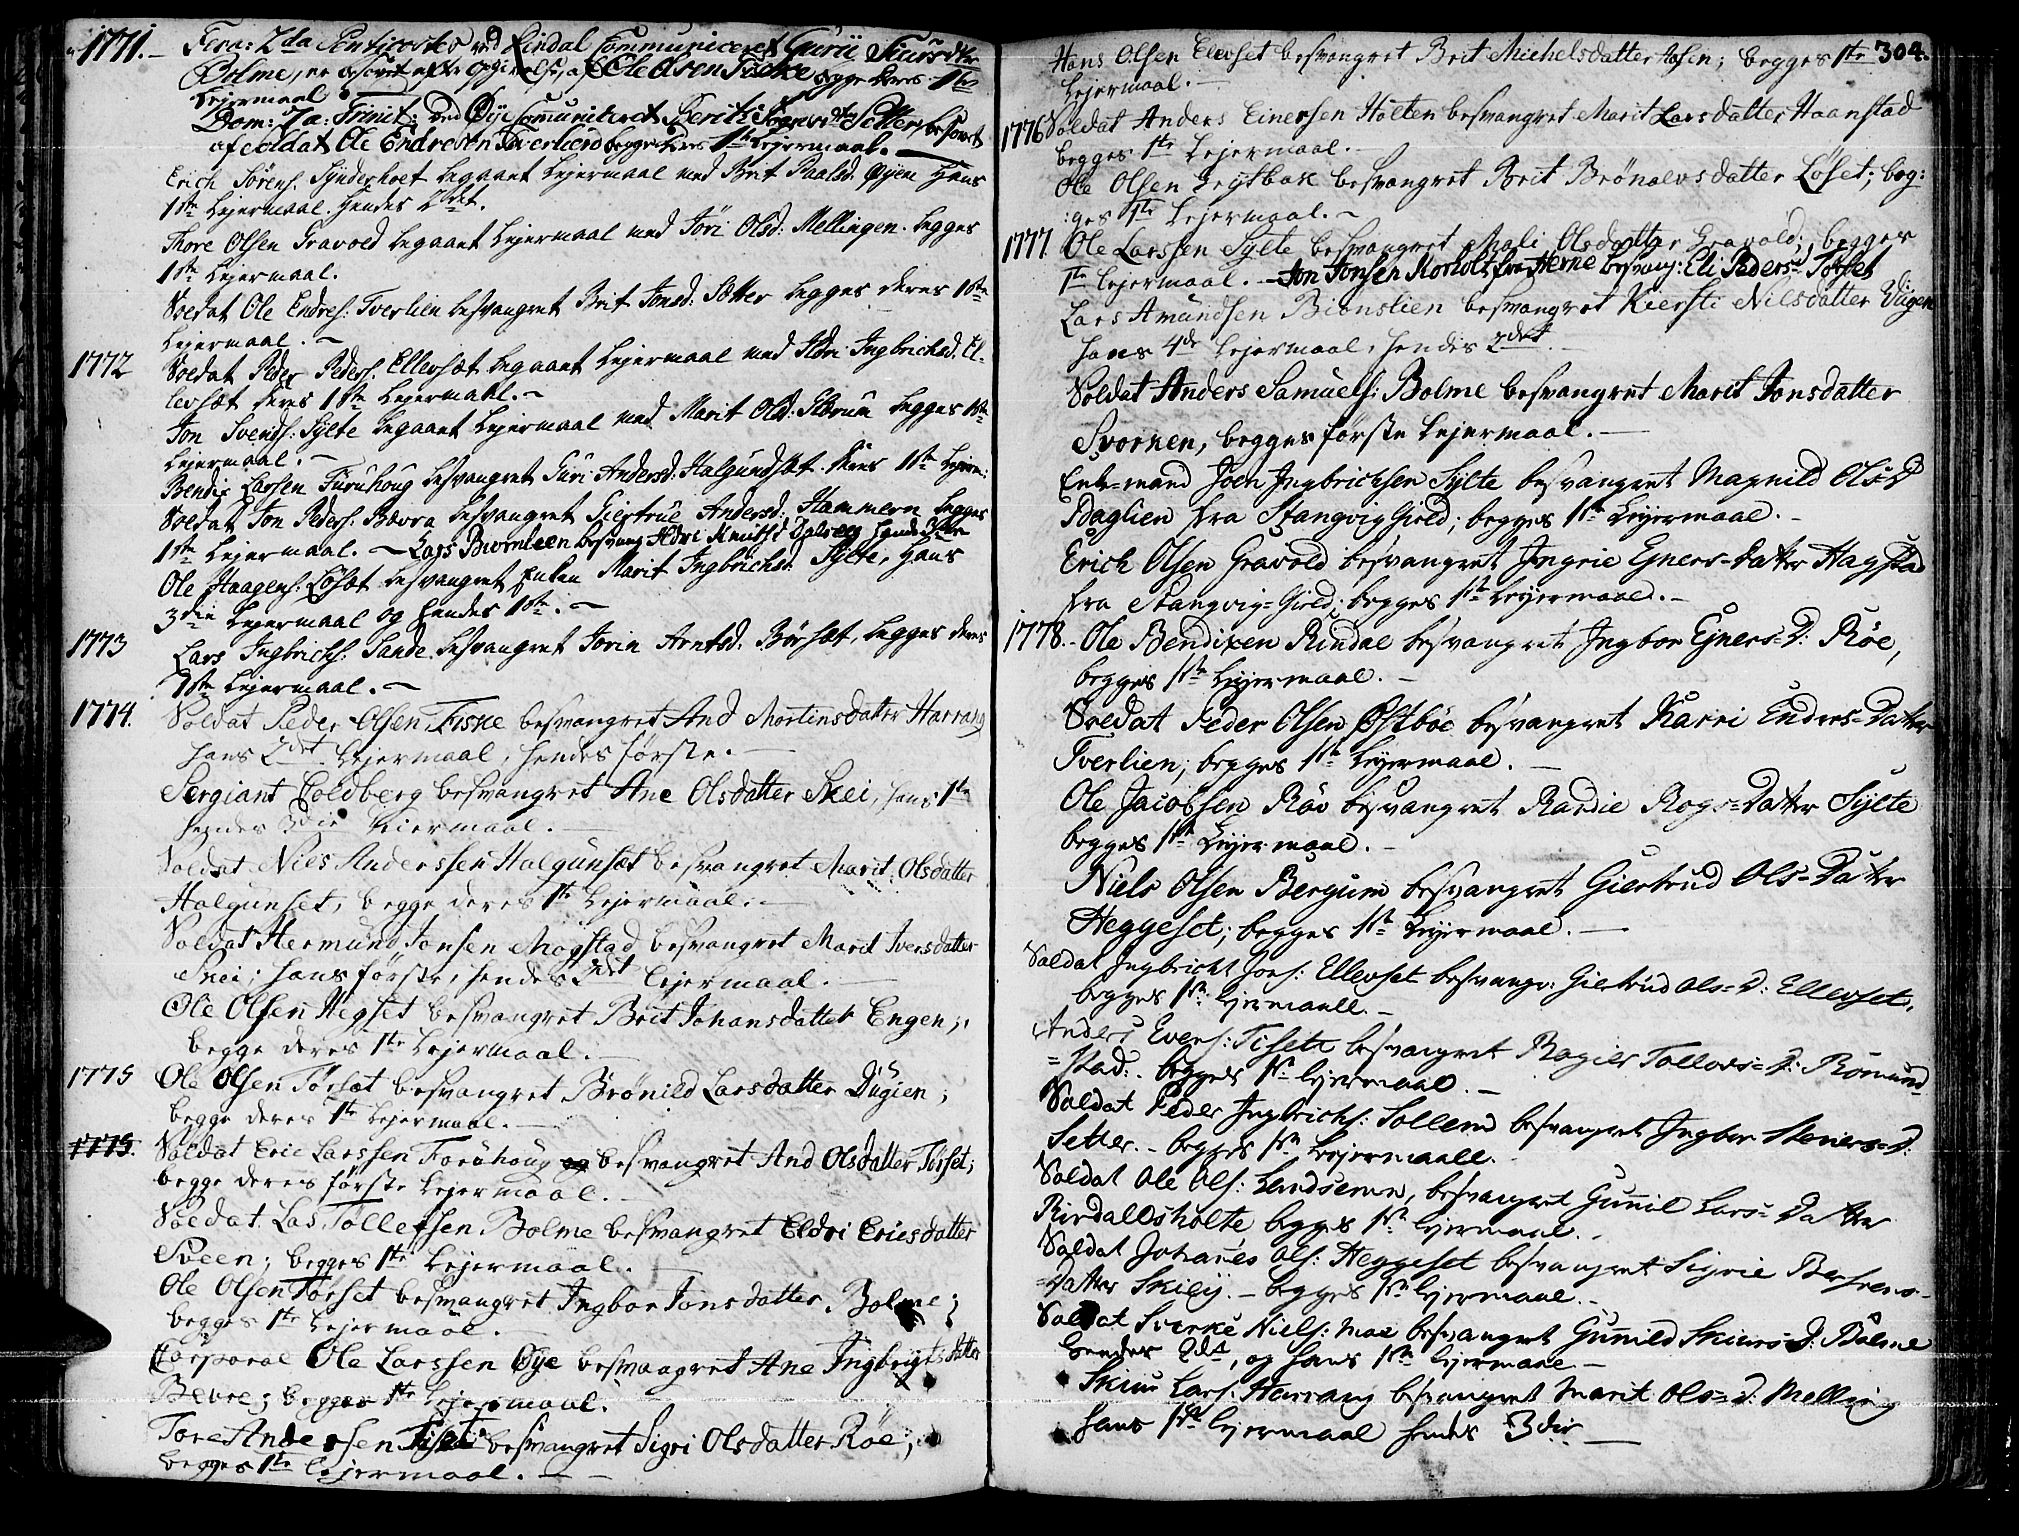 1771. Fera: 2da Pentecostes ved Rindal Communiceret Gurii Siursdtr
Bolme, er besovet efter Opgivelse, af Ole Olsen Fiske begge deres 1te
Lejermaal
Dom: 7a: Trinit: ved Øye Communiceret Berit Setter, besovet
af Soldat Ole Endresen Tverlied begge deres 1te Lejermaal.
Erich Sørens. Sønderhoet begaaet Lejermaal med Brit Paalsd. Øyen Hans
1ste Lejermaal. Hendes 2det.
Thore Olsen Gravold begaaet Lejermaal med Jöri Olsd: Mellingen. begges
1ste Lejermaal.
Soldat Ole Endres: Tverlien besvangret Brit Jonsd: Sætter begges deres 1ste
Lejermaal. -
1772 Soldat Peder Peders. Ellevsæt begaaet Lejermaal med Ildri Ingbrichsd. El-
levsæt deres 1ste Lejermaal. -
Jon Svends: Sylte begaaet Lejermaal med Marit Olsd: Glærum begges 1ste
Lejermaal. -
Bendix Larsen Furuhoug besvangret Guri Andersd: Halgundsæt. deres 1ste Lejerm:
Soldat Jon Peders: Bævra besvangret Giertrue Andersd: Hammern begges
1ste Lejermaal. - Lars Biornleen besvang Ildri Knutsd Dalsegg hendes 3die
Ole Haagens: Löset besvangret Enken Marit Ingbrichsd. Sylte, Hans
3die Lejermaal og Hendes 1ste. -
1773 Lars Ingbrichs: Sande besvangret Jorin Arntsd. Börset, begges deres
1ste Lejermaal. -
1774. Soldat Peder Olsen Fiske besvangret And Mortinsdatter Harrang
hans 2det Lejermaal, hendes første. -
Sergiant Coldberg besvangret Ane Olsdatter Skei, hans 1te
hendes 3die Leiermaal. -
Soldat Niels Anderssen Halgunset besvangret Marit Olsdatter
Halgunset, begge deres 1te Lejermaal. -
Soldat Hermund Jonsen Mogstad besvangret Marit Iversdatter
Skei; hans første, hendes 2det Lejermaal. -
Ole Olsen Hegset besvangret Brit Johansdatter Engen;
begge deres 1te Lejermaal. -
1775 Ole Olsen Törset besvangret Brönild Larsdatter Dügien;
begge deres 1te Lejermaal. -
1775. Soldat Eric Larssen Foruhoug og besvangret And Olsdatter Törset;
begge deres første Lejermaal. -
Soldat Las Tollefsen Bolme besvangret Eldri Ericsdatter
Sveen; begges 1te Lejermaal. -
Ole Olsen Törset besvangret Ingbor Jonsdatter Bolme;
begges 1te Lejermaal. -
Corporal Ole Larssen Øye besvangret Ane Ingbrigtsdatter
Bevre; begges 1te Lejermaal.
Tore Andersen Tiset besvangret Sigri Olsdatter Röe;
begges 1te Lejermaal. -
304.
Hans Olsen Elevset besvangret Brit Michelsdatter Aasen; begges 1te
Lejermaal. -
1776 Soldat Anders Einersen Holten besvangret Marit Larsdatter Haanstad
begges 1te Lejermaal. -
Ole Olsen besvangret Brit Brönelvsdatter Löset; beg:
:ges 1te Lejermaal. -
1777 Ole Larssen Sylte besvangret Mali Olsdatter Gravold; begges
1te Lejermaal. - Jon Jonsen fra Hevne besvang: Eli Peders: Törset
Lars Amundsen Biönslien besvangret Kiersti Nilsdatter Dügen
hans 4de Lejermaal, hendes 2det -
Soldat Anders Samuels: Bolme besvangret Marit Jonsdatter
Svornen, begges første Lejermaal. -
Enke-mand Joen Ingbrichsen Sylte besvangret Magnild Ols-D
Daglien fra Stangvig Gield; begges 1ste Leijermaal. -
Erich Olsen Gravold besvangret Ingrie Ejners-Datter Hagstad
fra Stangvig-Gield; begges 1ste Leijermaal. -
1778. - Ole Bendixen Rindal besvangret Ingbor Ejners-D: Röe,
begges 1ste Leijermaal. -
Soldat Peder Olsen Østböe besvangret Karri Enders-Datter
Tverlien; begges 1ste Leijermaal. -
Ole Jacobsen Röe besvangret Randie Rogs-Datter Sylte
begges 1ste Leijermaal. -
Niels Olsen Bergum besvangret Giertrud Ols-Datter
Heggeset; begges 1st Leijermaal. -
Soldat Ingbricht Jons: Ellevset besvangr: Giertrud Ols-D: Ellevset.
begges 1ste lejermaall. -
Anders Evens: Tisett besvangret Ragild Tollevs-D: Römund
-stad. begges 1ste lejermaal. -
Soldat Peder Ingbrichs: Sollem besvangret Ingbor Steners-D:
Setter. - begges 1ste Leijermaall. -
Soldat Ole Ols: Landsemn, besvangret Gunil Lars-Datter
Rindallsholte begges 1ste leijermaal. -
Soldat Johanes Ols: Heggeset besvangret Sigrie
-Datter - begges 1ste leijermaal. -
Soldat Niels: Moe besvangret Gunild Skiurs-D: Bolme
hendes 2det, og hans 1ste leijermaal -
Skiur Lars: Harrang besvangret Marit Ols-D: Melling
hans 1ste leijermaal hendes 3die -